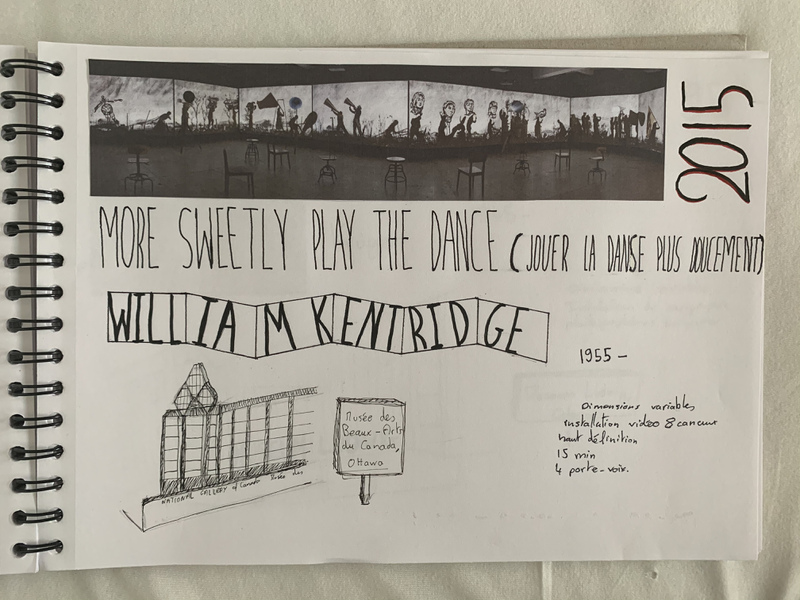 2015
MORE SWEETLY PLAY THE DANCE (JOUER LA DANSE PLUS DOUCEMENT)
WILLIAM KENTRIDGE
1955-
Dimensions variables
installation vidéo 8 canaux
haut définition
15 min
4 porte-voix.
Musée des
Beaux-Arts
du Canada,
Ottawa
NATIONAL GALLERY of Canada Musée des